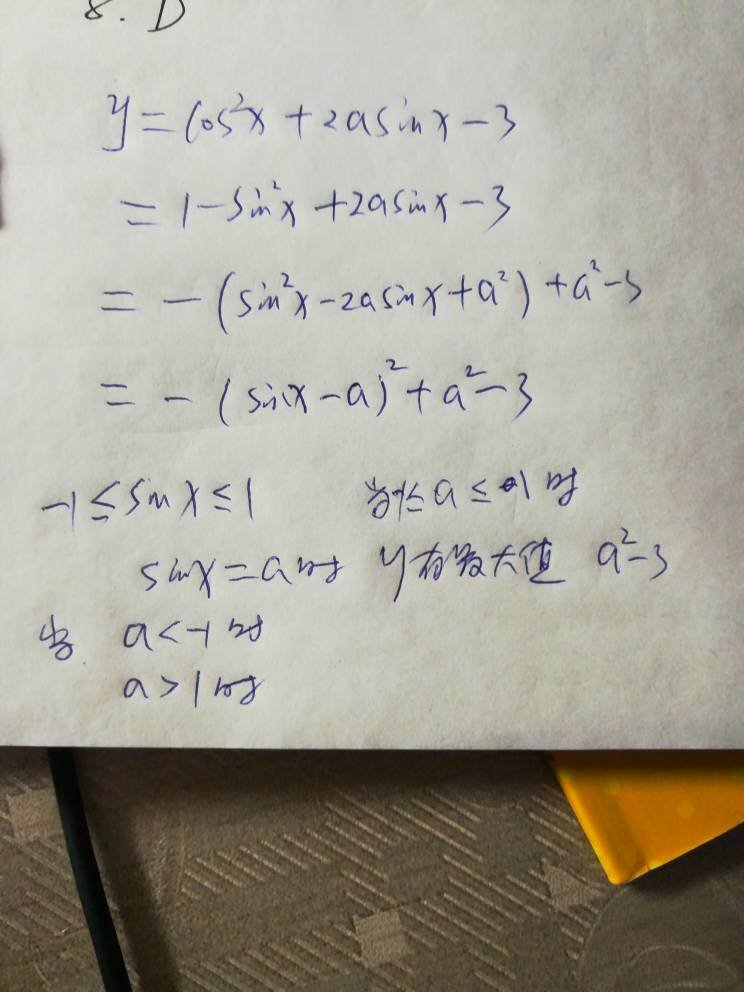 8. D
y = cos²x + 2a sin x - 3
= 1 - sin²x + 2a sin x - 3
= -(sin²x - 2a sin x + a²) + a² - 3
= -(sin x - a)² + a² - 3
-1 ≤ sin x ≤ 1 当-1≤ a ≤ 1时
sin x = a时 y有最大值 a²-3
当 a < -1时
a > 1时